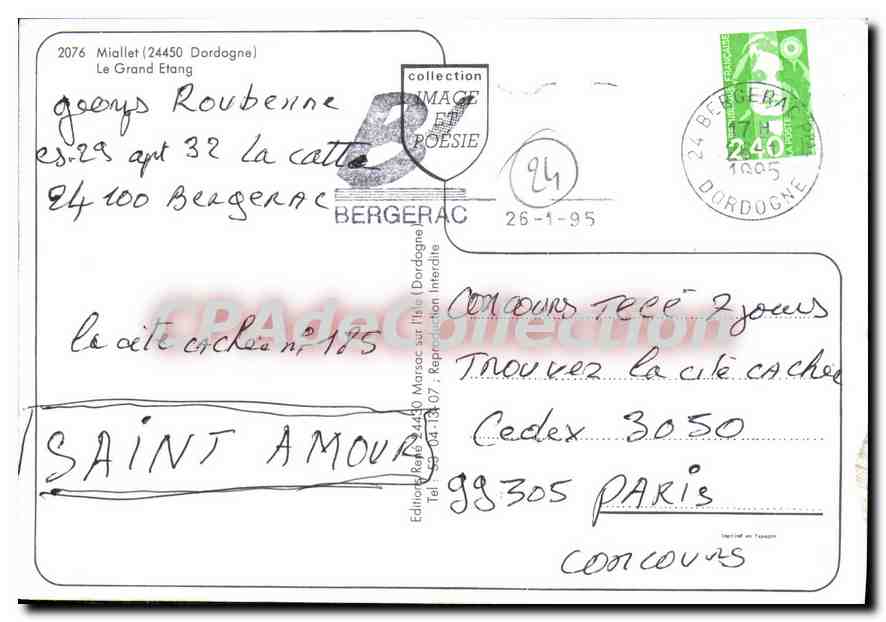 2076 Miallet (24450 Dordogne)
Le Grand Etang
georges Roubenne
es. 29 apt 32 La catte
24100 BERGERAC
la cité cachée n° 185
SAINT AMOUR
collection
IMAGE
ET
POÉSIE
B
BERGERAC
24
26-1-95
RÉPUBLIQUE FRANÇAISE
2,40
LA POSTE
24 BERGERAC
17 H
1995
DORDOGNE
Editions René 24430 Marsac sur l'Isle (Dordogne)
Tel : 53-04-13-07 ; Reproduction Interdite
CONCOURS TELÉ 7 jours
TROUVEZ la cité CACHée
Cedex 3050
99305 PARIS
Imprimé en Espagne
CONCOURS
CPAdeCollection